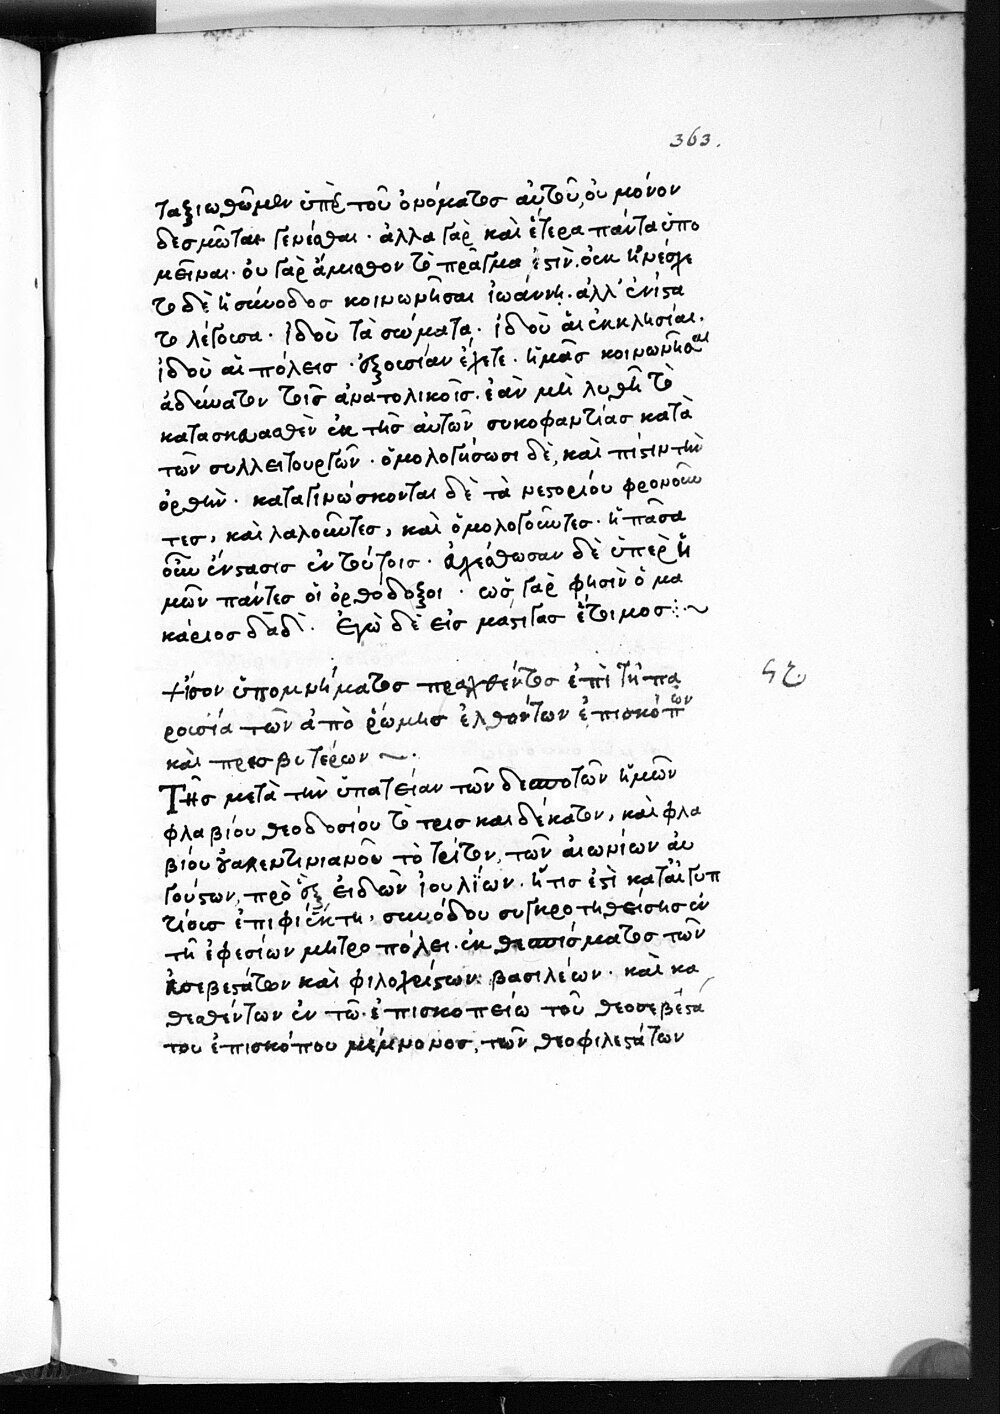 363.
ταξιωθῶμεν ὑπὲρ τοῦ ὀνόματος αὐτοῦ, οὐ μόνον
δεσμῶται γενέσθαι · ἀλλὰ γὰρ καὶ ἕτερα πάντα ὑπο
μεῖναι · οὐ γὰρ ἄμισθον τὸ πρᾶγμα ἐστὶν. οὐκ ἠνέσχε
το δὲ ἡ σύνοδος κοινωνῆσαι ἰωάννη · ἀλλ' ἐνίστα
το λέγουσα · ἰδοὺ τὰ σώματα · ἰδοὺ αἱ ἐκκλησίαι.
ἰδοὺ αἱ πόλεις · ἐξουσίαν ἔχετε · ἡμᾶς κοινωνῆσαι
ἀδύνατον τοῖς ἀνατολικοῖς. ἐὰν μὴ λυθῆ τὸ
κατασκευασθὲν ἐκ τῆς αὐτῶν συκοφαντίας κατὰ
τῶν συλλειτουργῶν · ὁμολογήσωσι δὲ, καὶ πίστιν τὴν
ὀρθὴν · καταγινώσκονται δὲ τὰ νεστορίου φρονοῦν
τες, καὶ λαλοῦντες, καὶ ὁμολογοῦντες · ἡ πᾶσα
οὖν ἔνστασις ἐν τούτοις · εὐχέσθωσαν δὲ ὑπὲρ ἡ
μῶν πάντες οἱ ὀρθόδοξοι · ὡς γὰρ φησὶν ὁ μα
κάριος δαδ · Ἐγὼ δὲ εἰς μάστιγας ἕτοιμος :~
+ἴσον ὑπομνήματος πραχθέντος ἐπὶ τῆ πα
ρουσία τῶν ἀπὸ ῥώμης ἐλθόντων ἐπισκόπων
καὶ πρεσβυτέρων ~ ·
Τῆς μετὰ τὴν ὑπατείαν τῶν δεσποτῶν ἡμῶν
φλαβίου θεοδοσίου τὸ τρισκαιδέκατον, καὶ φλα
βίου οὐαλεντινιανοῦ τὸ τρίτον, τῶν αἰωνίων αὐ
γούστων, πρὸ ἓξ εἰδῶν ἰουλίων · ἥτις ἐστὶ κατ' αἰγυπ
τίους ἐπιφὶ ἕκτη, συνόδου συγκροτηθείσης ἐν
τῆ ἐφεσίων μητροπόλει · ἐκ θεσπίσματος τῶν
εὐσεβεστάτων καὶ φιλοχρίστων βασιλέων · καὶ κα
θεσθέντων ἐν τῶ ἐπισκοπείω τοῦ θεοσεβεστά
του ἐπισκόπου μέμνονος, τῶν θεοφιλεστάτων